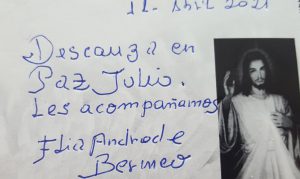 11- Abril 2021
Descanza en
Paz Julio.
Les acompañamos
Elia Andrade
Bermeo